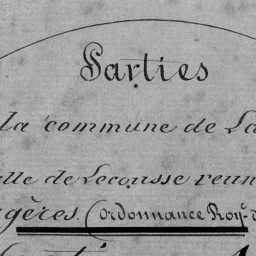 Parties
la commune de La
elle de Lecousse reun
gères. (ordonnance Roy.